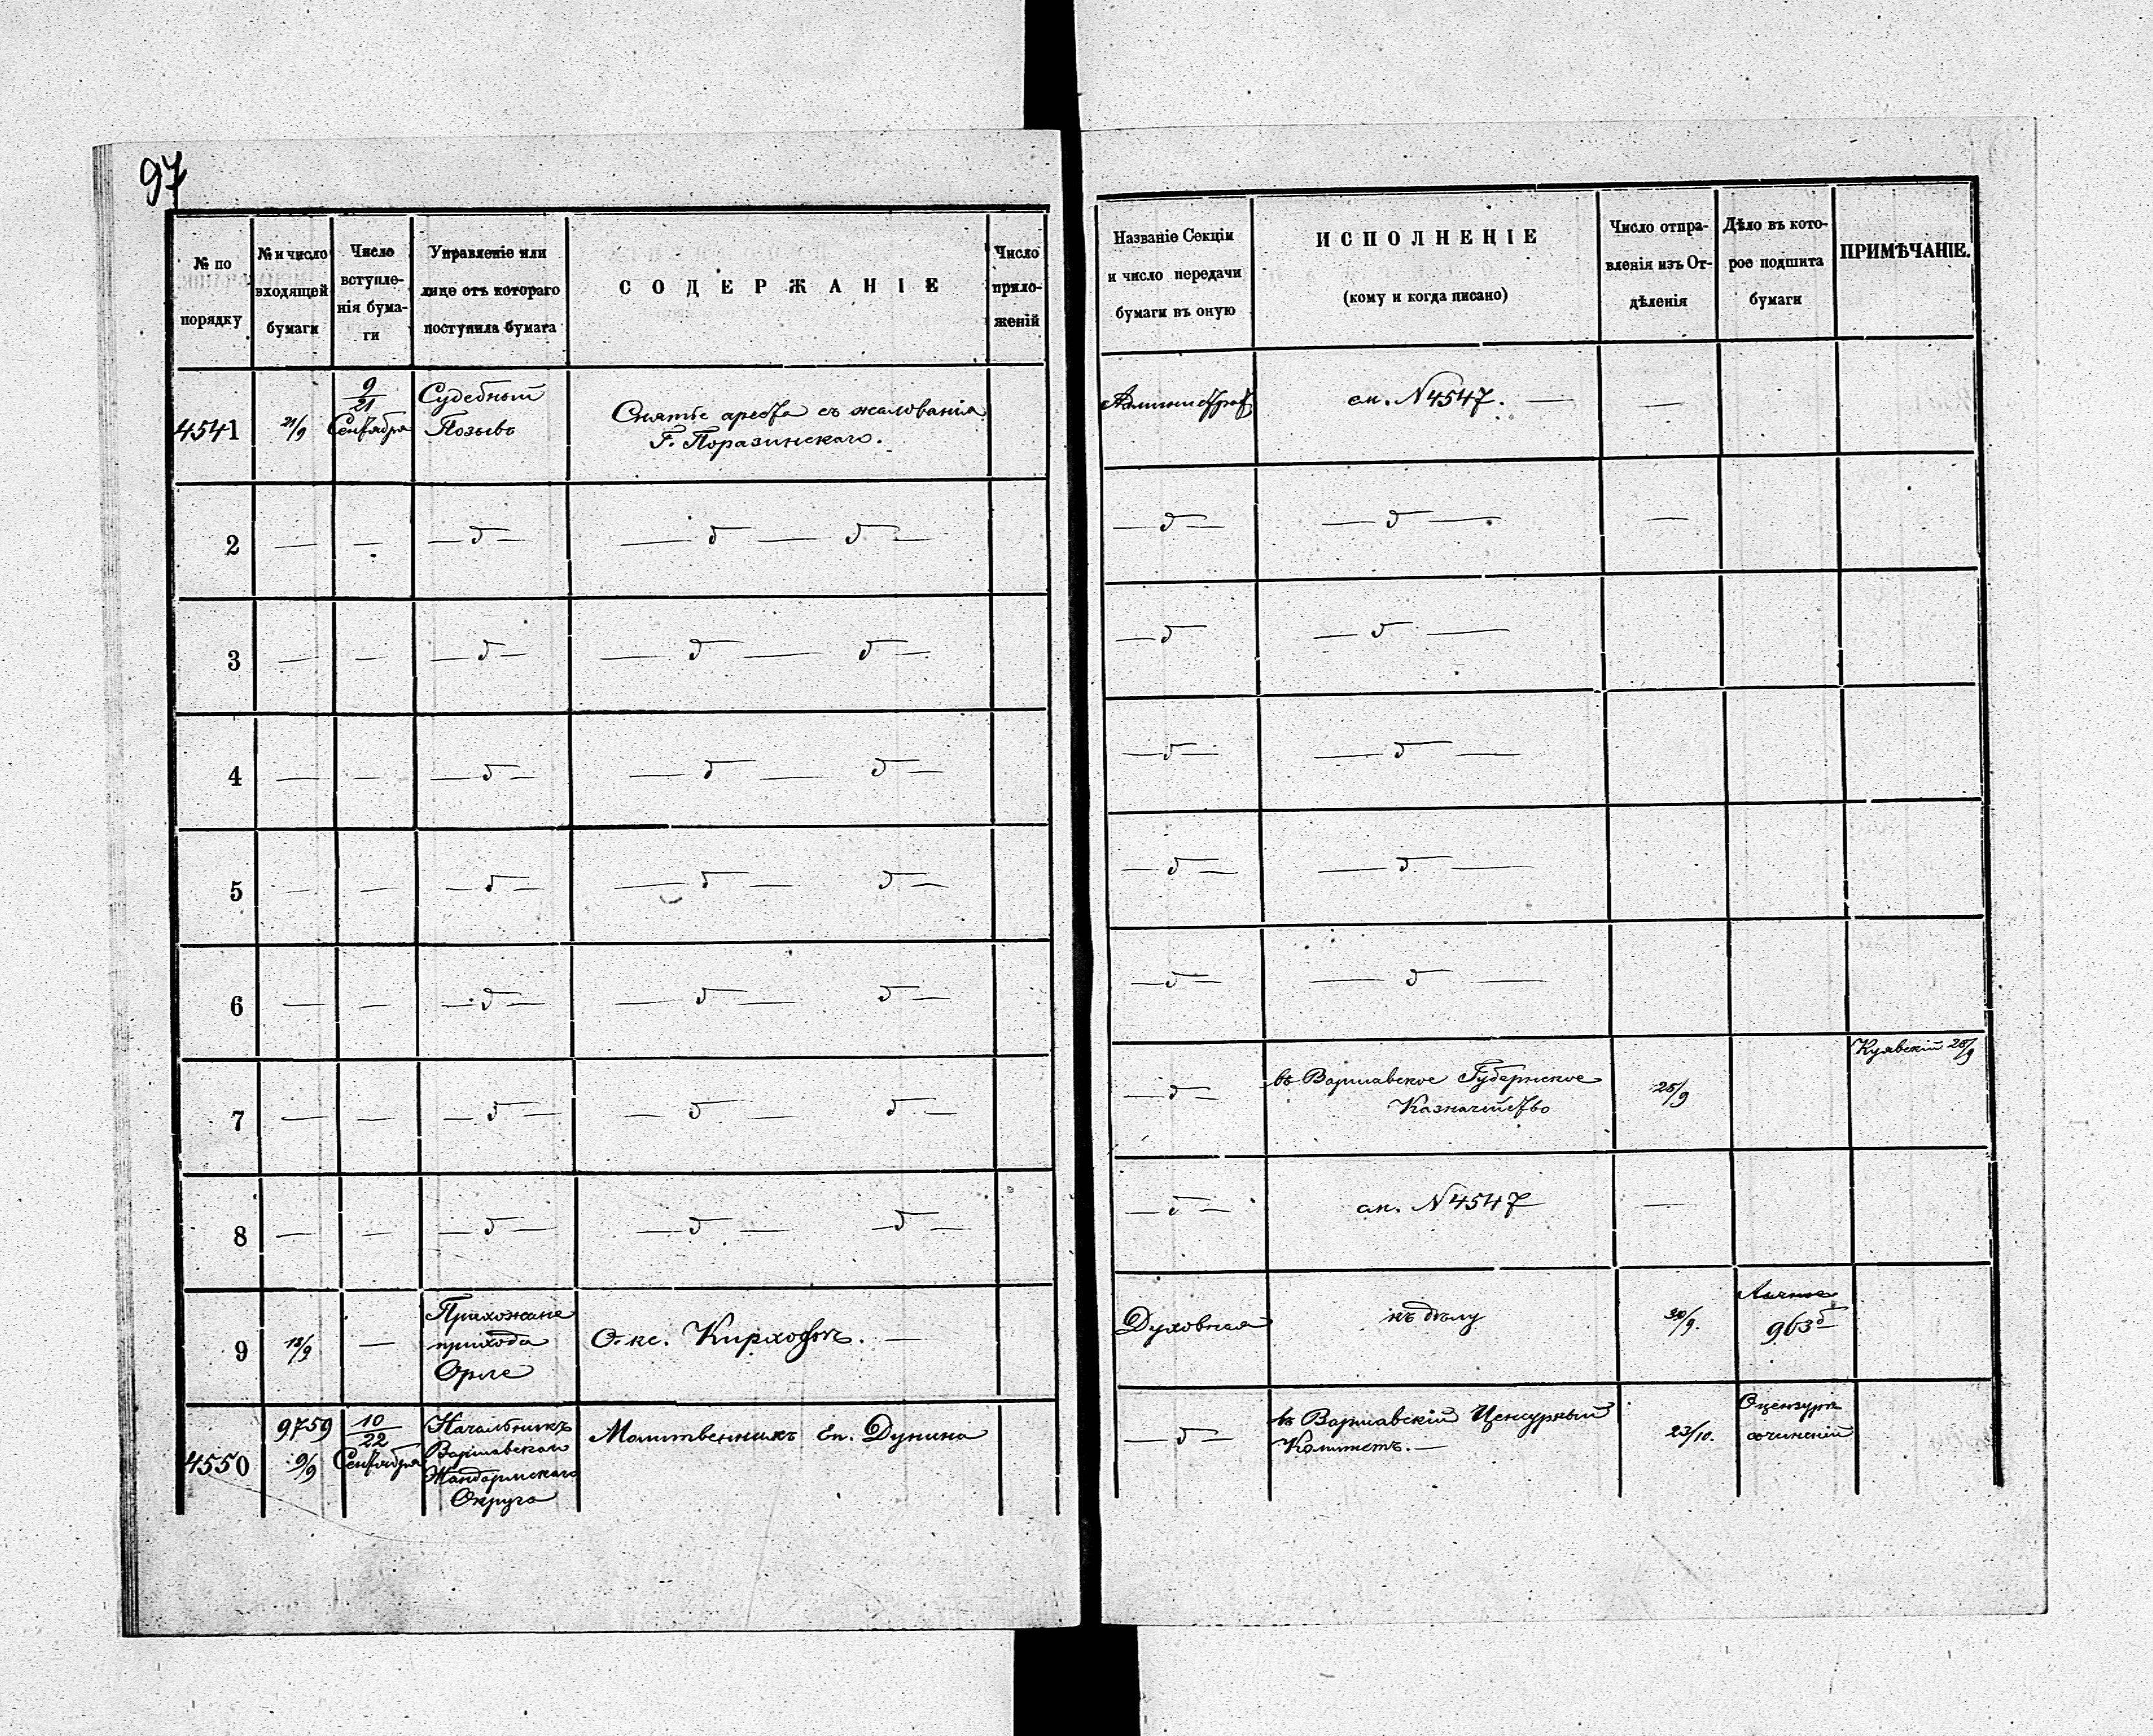 97
№ по порядку
№ и число входящей бумаги
Число вступле-нія бума-ги
Управленіе или лице отъ котораго поступила бумага
СОДЕРЖАНІЕ
Число прило-женій
Названіе Секціи и число передачи бумаги въ оную
ИСПОЛНЕНІЕ
(кому и когда писано)
Число отпра-вленія изъ От-дѣленія
Дѣло въ кото-рое подшита бумаги
ПРИМѢЧАНІЕ.
4541 21/9 9/21 Сентября Судебный Позывъ Снятіе ареста съ жалованія Г. Поразинскаго. см. N 4547. —
2 — — — — —
3 — — — — —
4 — — — — —
5 — — — — —
6 — — — — —
7 — — — — — въ Варшавское Губернское Казначейство 25/9 Куявскій 25/9
8 — — — — — см. N 4547 —
9 18/9 — Прихожане прихода Орле О кс. Кирхофѣ. — Духовная къ дѣлу 30/9. Личное 963
4550 9759 9/9 10/22 Сентября Начальникъ Варшавскаго Жандармскаго Округа Молитвенникъ Еп. Дунина въ Варшавскій Цензурный Комитетъ. — 23/10. О цензурѣ сочиненій